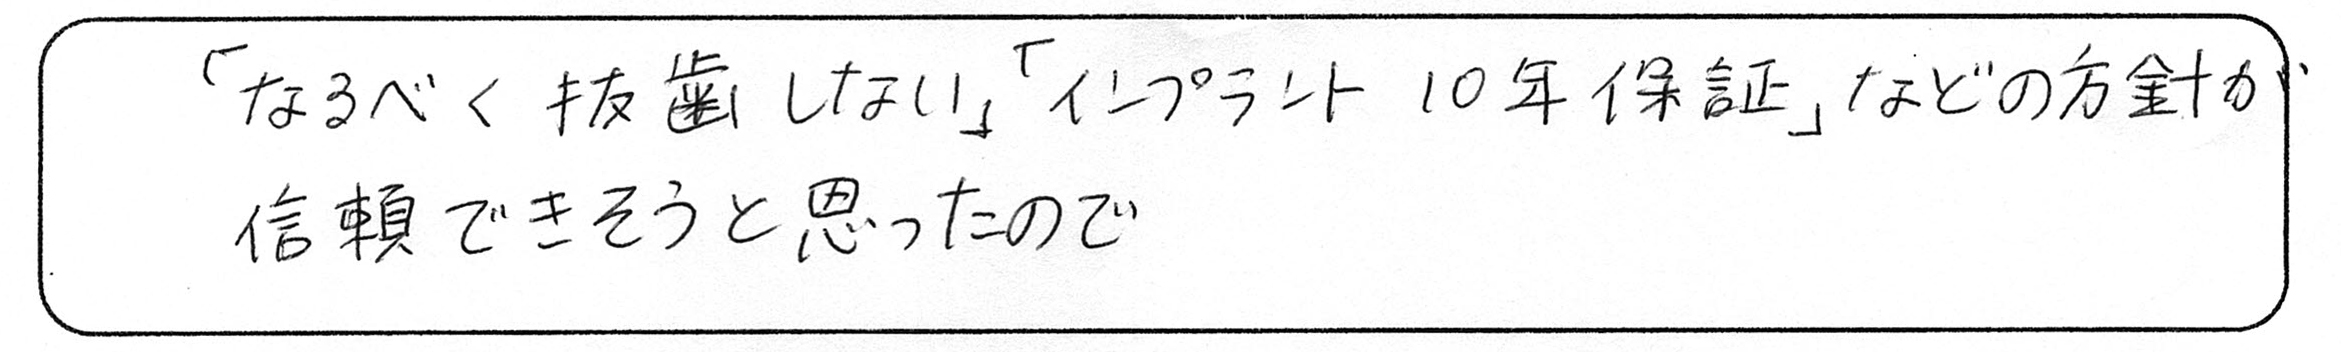 「なるべく抜歯しない」「インプラント10年保証」などの方針が
信頼できそうと思ったので